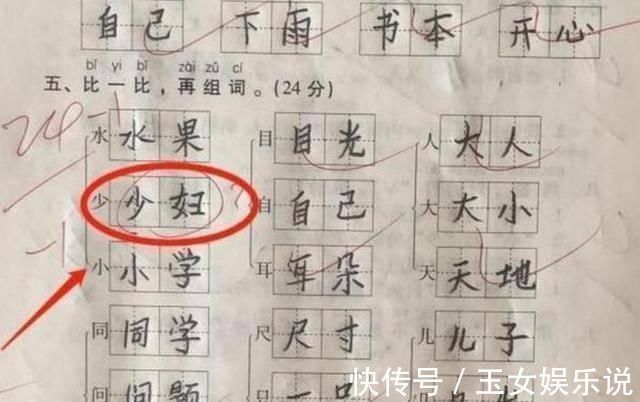 自己 下雨 书本 开心
bǐ yi bǐ zài zǔ cí
五、比一比，再组词。(24分)
24-1
水 水果 目 目光 人 大人
少 少妇 自 自己 大 大小
-1
小 小学 耳 耳朵 天 天地
同 同学 尺 尺寸 儿 儿子
问 问题 只 一只
快传号 / 玉女娱乐说